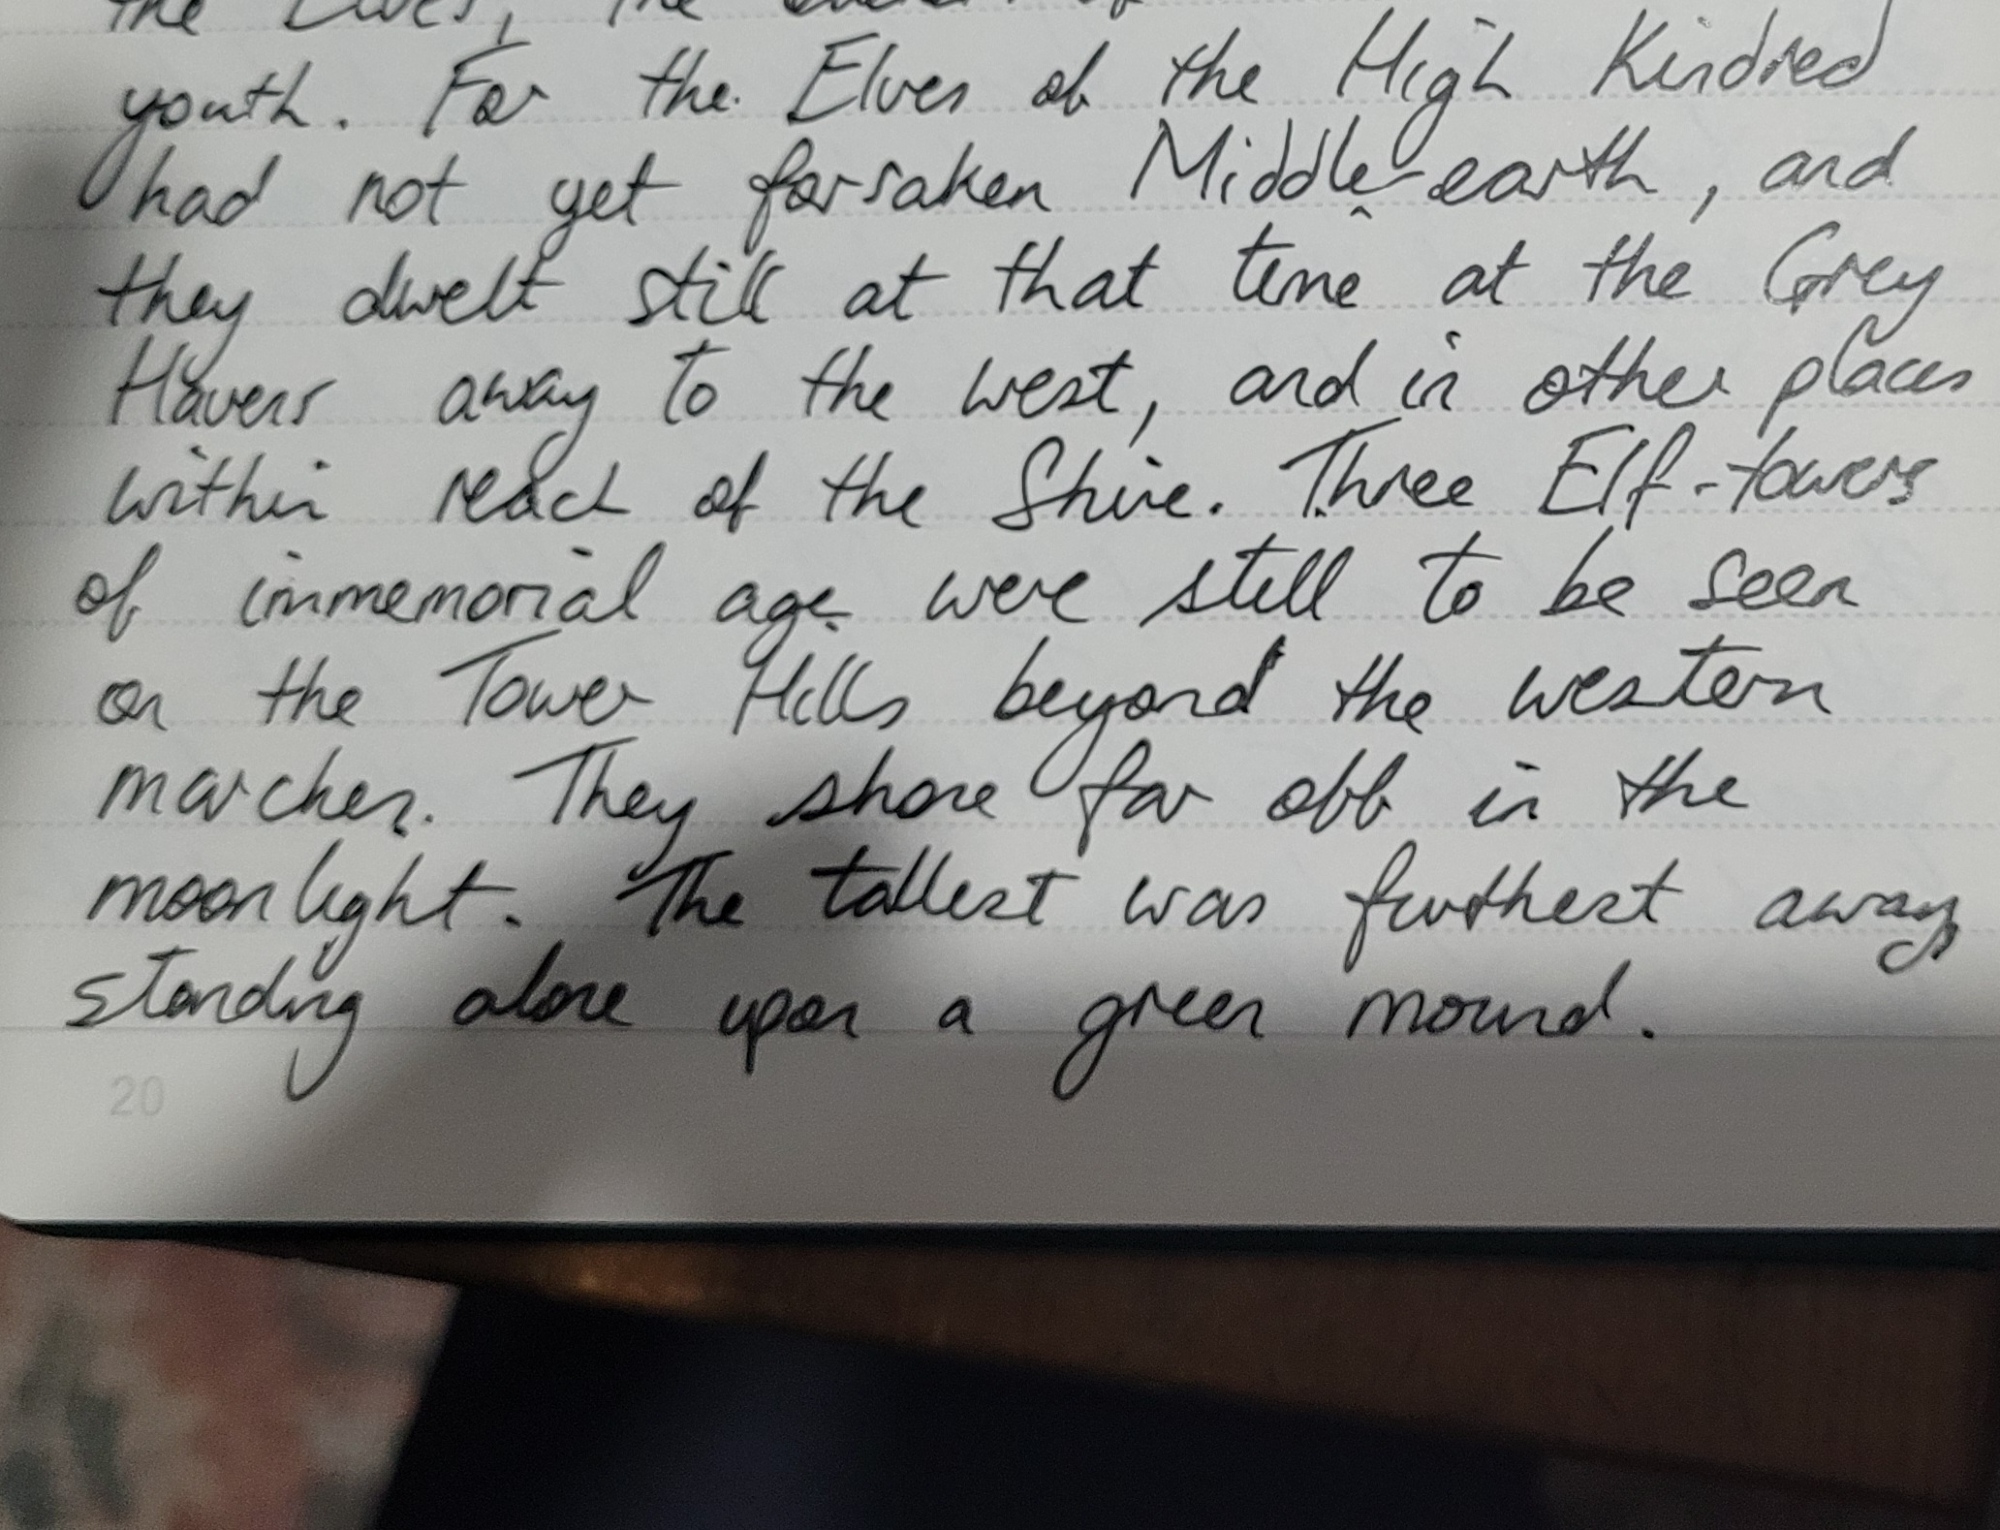 the Elves, the
youth. For the Elves of the High Kindred
had not yet forsaken Middle-earth, and
they dwelt still at that time at the Grey
Havens away to the west, and in other places
within reach of the Shire. Three Elf-towers
of immemorial age were still to be seen
on the Tower Hills beyond the western
marches. They shone far off in the
moonlight. The tallest was furthest away,
standing alone upon a green mound.
20